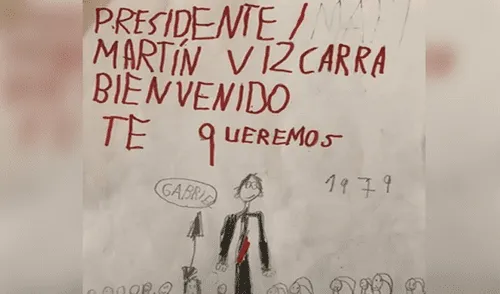 PRESIDENTE /
MARTÍN VIZCARRA
BIENVENIDO
TE QUEREMOS
GABRIEL
1979